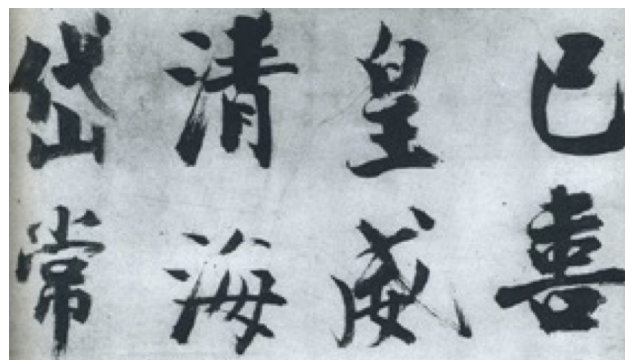 已喜
皇威
清海
岱常